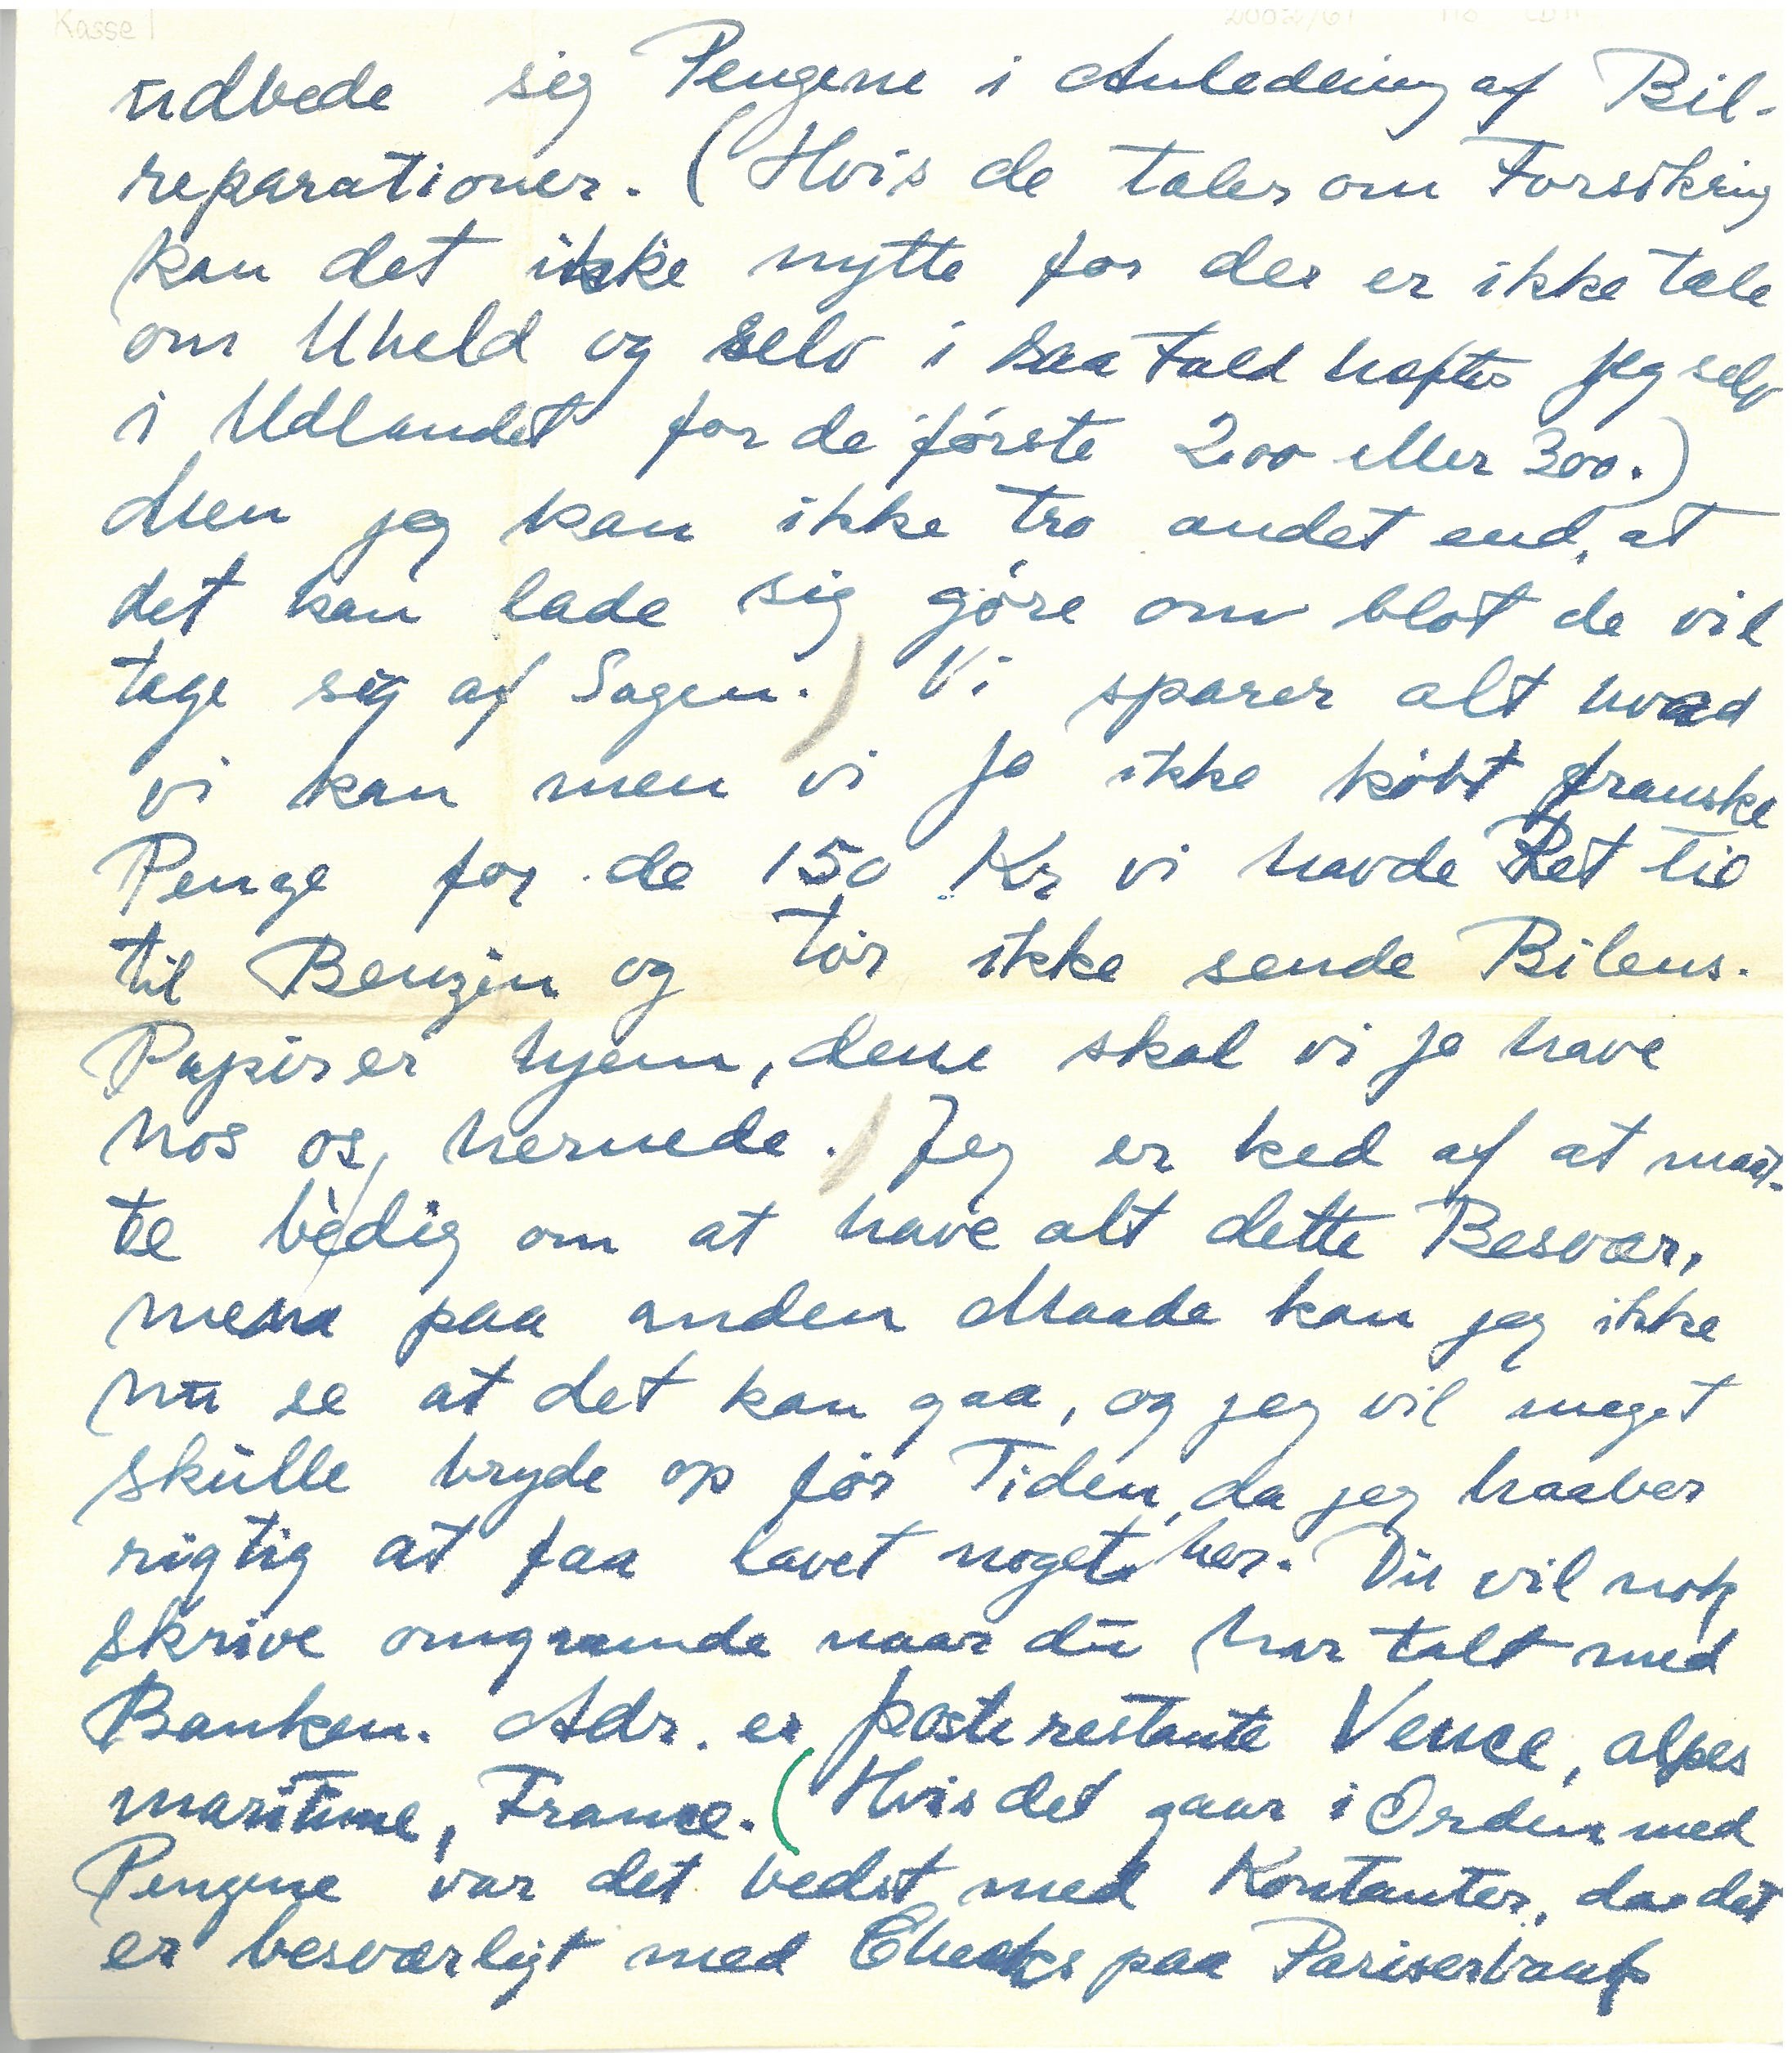 Kasse 1
udbede sig Pengene i Anledning af Bil-
reparationer. (Hvis de taler om Forsikring
kan det ikke nytte for der er ikke tale
om Uheld og selv i saa Fald hæftes jeg selv
i Udlandet for de første 200 eller 300.)
Men jeg kan ikke tro andet end, at
det kan lade sig gøre om blot de vil
tage sig af Sagen.) Vi sparer alt hvad
vi kan men vi jo ikke købt franske
Penge for de 150 Kr vi havde Ret til
til Benzin og tør ikke sende Bilens.
Papirer hjem, dem skal vi jo have
hos os, hernede. Jeg er ked af at maat-
te bedig om at have alt dette Besvær,
men paa anden Maade kan jeg ikke
nu se at det kan gaa, og jeg vil meget
skulle bryde op før Tiden, da jeg haaber
rigtig at faa lavet noget her. Du vil nok
skrive omgaaende naar du har talt med
Banken. Adr. er poste restante Vence, alpes
maritime, France. (Hvis det gaar i Orden med
Pengene var det bedst med Kontanter, da det
er besværligt med Checks paa Pariserbank